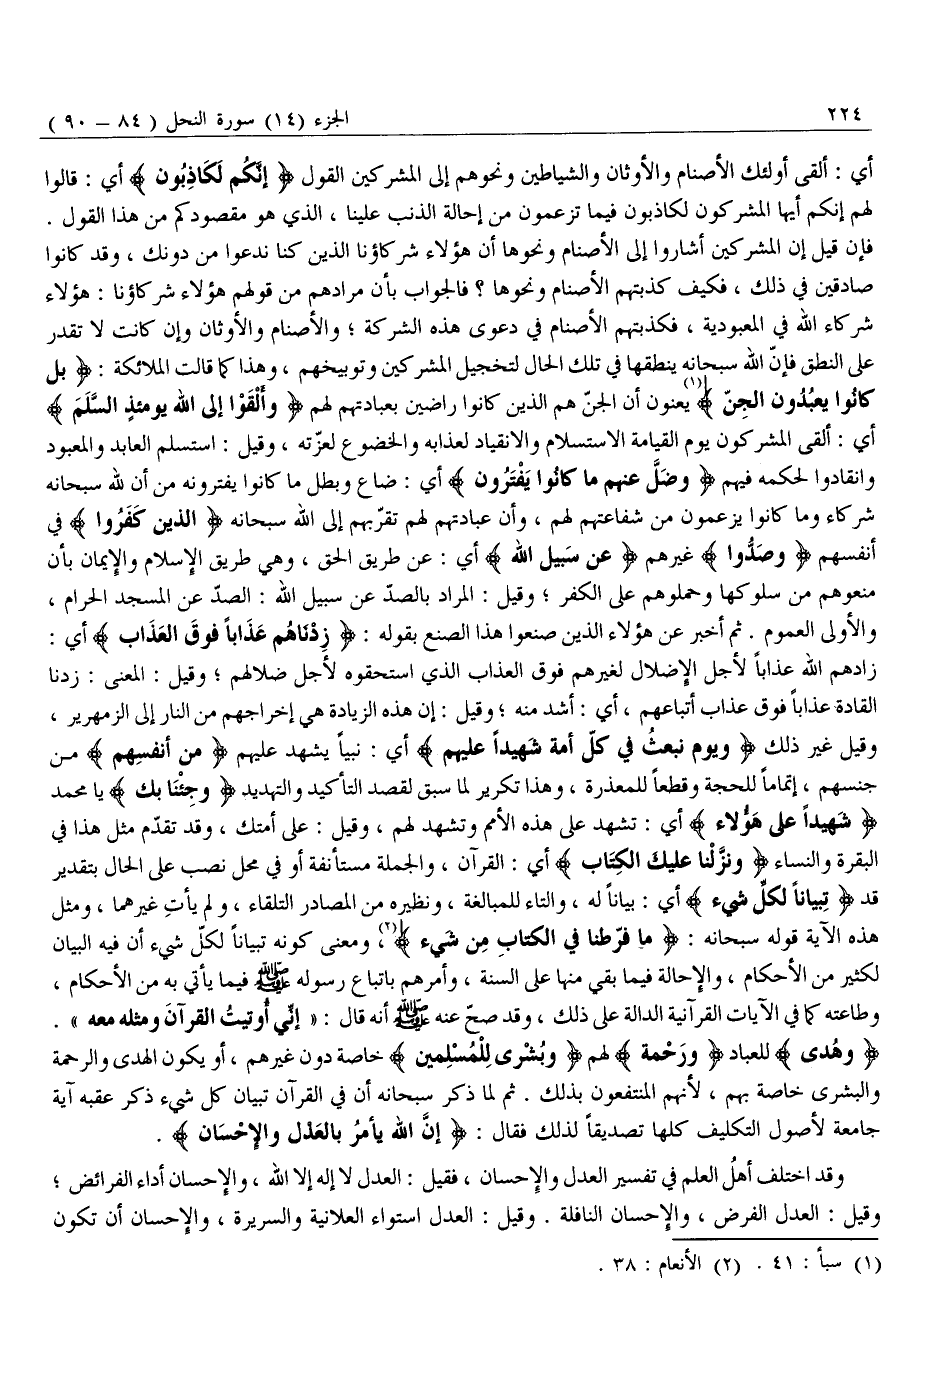 ٢٢٤
الجزء (١٤) سورة النحل ( ٨٤ – ٩٠ )
أي : ألقى أولئك الأصنام والأوثان والشياطين ونحوهم إلى المشركين القول ﴿ إنَّكُم لَكَاذِبُون ﴾ أي : قالوا
لهم إنكم أيها المشركون لكاذبون فيما تزعمون من إحالة الذنب علينا ، الذي هو مقصودكم من هذا القول .
فإن قيل إن المشركين أشاروا إلى الأصنام ونحوها أن هؤلاء شركاؤنا الذين كنا ندعوا من دونك ، وقد كانوا
صادقين في ذلك ، فكيف كذبتهم الأصنام ونحوها ؟ فالجواب بأن مرادهم من قولهم هؤلاء شركاؤنا : هؤلاء
شركاء الله في المعبودية ، فكذبتهم الأصنام في دعوى هذه الشركة ؛ والأصنام والأوثان وإن كانت لا تقدر
على النطق فإنّ الله سبحانه ينطقها في تلك الحال لتخجيل المشركين وتوبيخهم ، وهذا كما قالت الملائكة : ﴿ بل
كانُوا يعبُدُون الجِنّ ﴾(١) يعنون أن الجنّ هم الذين كانوا راضين بعبادتهم لهم ﴿ وأَلْقَوْا إلى الله يومئذٍ السَّلَمَ ﴾
أي : ألقى المشركون يوم القيامة الاستسلام والانقياد لعذابه والخضوع لعزّته ، وقيل : استسلم العابد والمعبود
وانقادوا لحكمه فيهم ﴿ وضَلَّ عنهم ما كانُوا يَفْتَرُون ﴾ أي : ضاع وبطل ما كانوا يفترونه من أن لله سبحانه
شركاء وما كانوا يزعمون من شفاعتهم لهم ، وأن عبادتهم لهم تقرّبهم إلى الله سبحانه ﴿ الذين كَفَرُوا ﴾ في
أنفسهم ﴿ وصَدُّوا ﴾ غيرهم ﴿ عن سَبيل الله ﴾ أي : عن طريق الحق ، وهي طريق الإسلام والإيمان بأن
منعوهم من سلوكها وحملوهم على الكفر ؛ وقيل : المراد بالصدّ عن سبيل الله : الصدّ عن المسجد الحرام ،
والأولى العموم . ثم أخبر عن هؤلاء الذين صنعوا هذا الصنع بقوله : ﴿ زِدْنَاهُم عَذَاباً فوقَ العَذَاب ﴾ أي :
زادهم الله عذاباً لأجل الإضلال لغيرهم فوق العذاب الذي استحقوه لأجل ضلالهم ؛ وقيل : المعنى : زدنا
القادة عذاباً فوق عذاب أتباعهم ، أي : أشد منه ؛ وقيل : إن هذه الزيادة هي إخراجهم من النار إلى الزمهرير ،
وقيل غير ذلك ﴿ ويوم نبعثُ في كلّ أمة شَهيداً عليهم ﴾ أي : نبياً يشهد عليهم ﴿ من أنفسِهم ﴾ مـن
جنسهم ، إتماماً للحجة وقطعاً للمعذرة ، وهذا تكرير لما سبق لقصد التأكيد والتهديد ﴿ وجِئْنَا بك ﴾ يا محمد
﴿ شَهيداً على هَؤُلاء ﴾ أي : تشهد على هذه الأمم وتشهد لهم ، وقيل : على أمتك ، وقد تقدّم مثل هذا في
البقرة والنساء ﴿ ونزَّلْنا عليك الكِتَاب ﴾ أي : القرآن ، والجملة مستأنفة أو في محل نصب على الحال بتقدير
قد ﴿ تِبياناً لكلِّ شيء ﴾ أي : بياناً له ، والتاء للمبالغة ، ونظيره من المصادر التلقاء ، ولم يأتِ غيرهما ، ومثل
هذه الآية قوله سبحانه : ﴿ ما فرّطنا في الكتابِ مِن شَيء ﴾(٢)، ومعنى كونه تبياناً لكلّ شيء أن فيه البيان
لكثير من الأحكام ، والإحالة فيما بقي منها على السنة ، وأمرهم باتباع رسوله ﷺ فيما يأتي به من الأحكام ،
وطاعته كما في الآيات القرآنية الدالة على ذلك ، وقد صحّ عنه ﷺ أنه قال : « إنّي أُوتيتُ القرآنَ ومثله معه » .
﴿ وهُدى ﴾ للعباد ﴿ ورَحْمة ﴾ لهم ﴿ وبُشْرى لِلْمُسْلِمين ﴾ خاصة دون غيرهم ، أو يكون الهدى والرحمة
والبشرى خاصة بهم ، لأنهم المنتفعون بذلك . ثم لما ذكر سبحانه أن في القرآن تبيان كل شيء ذكر عقبه آية
جامعة لأصول التكليف كلها تصديقاً لذلك فقال : ﴿ إنَّ الله يأمرُ بالعَدْل والإِحْسَان ﴾ .
وقد اختلف أهلُ العلم في تفسير العدل والإحسان ، فقيل : العدل لا إله إلا الله ، والإحسان أداء الفرائض ؛
وقيل : العدل الفرض ، والإحسان النافلة . وقيل : العدل استواء العلانية والسريرة ، والإحسان أن تكون
(١) سبأ : ٤١ . (٢) الأنعام : ٣٨ .